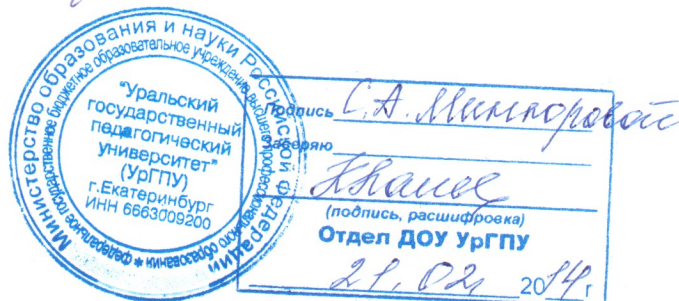 Министерство образования и науки Российской Федерации
федеральное государственное бюджетное образовательное учреждение высшего профессионального образования *
"Уральский
государственный
педагогический
университет"
(УрГПУ)
г.Екатеринбург
ИНН 6663009200
Подпись С.А.
Заверяю
(подпись, расшифровка)
Отдел ДОУ УрГПУ
21.02 2014 г